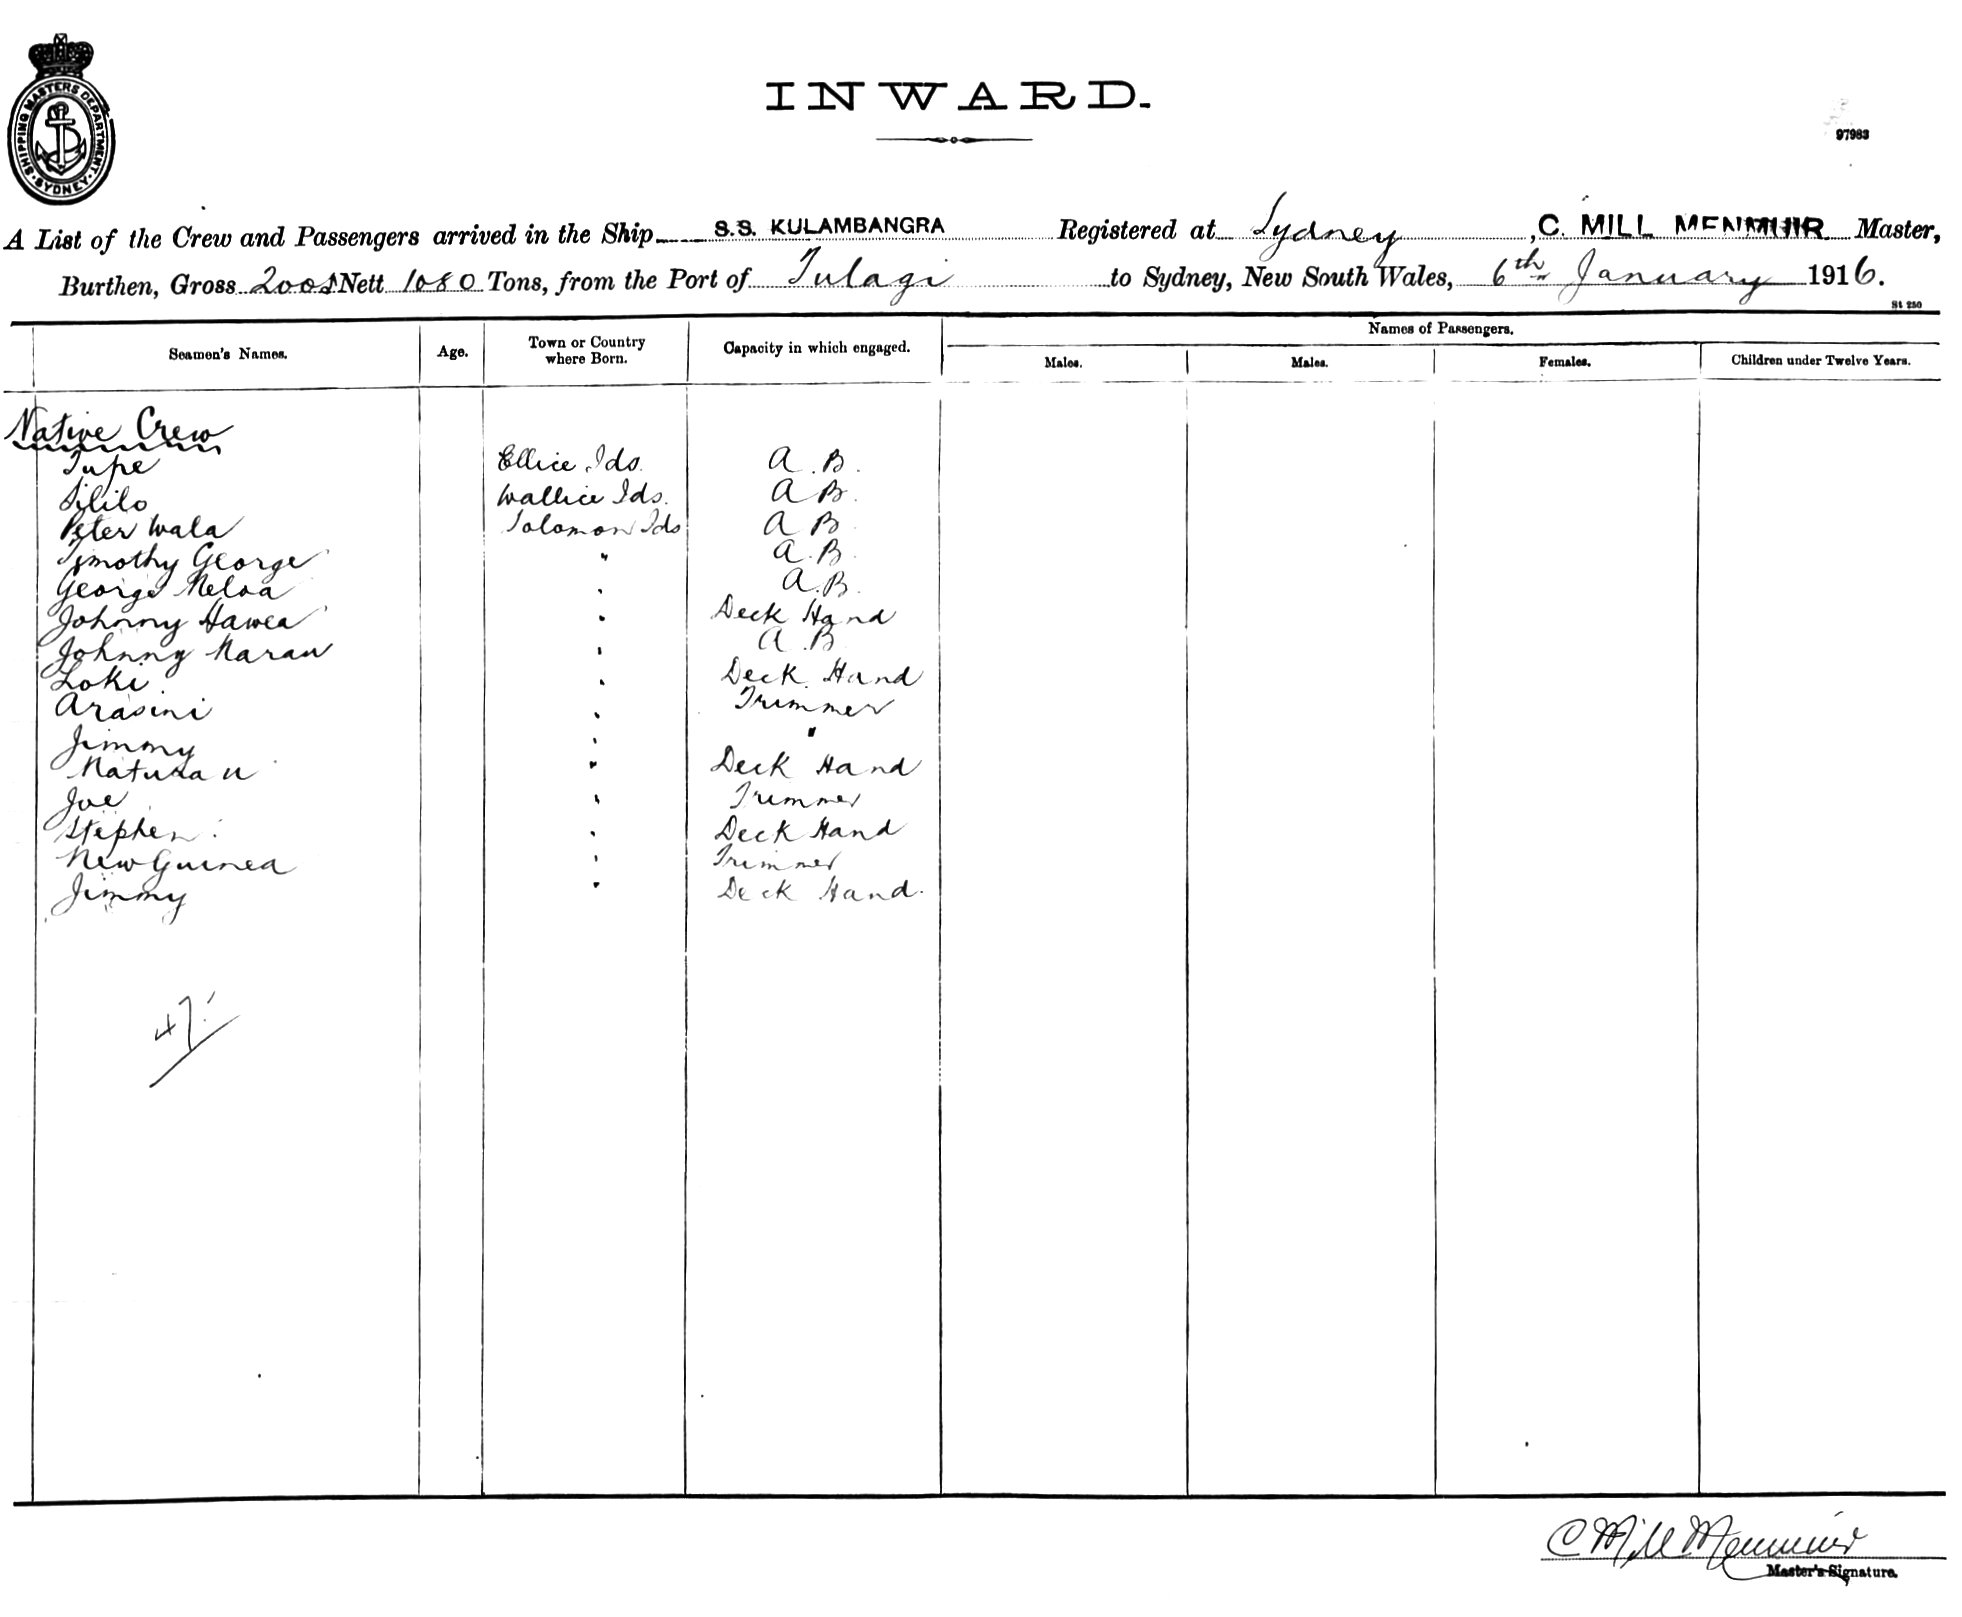 SHIPPING MASTERS DEPARTMENT · SYDNEY ·
INWARD.
97983
A List of the Crew and Passengers arrived in the Ship S.S. KULAMBANGRA Registered at Sydney, C. MILL MENMUIR Master,
Burthen, Gross Nett 1080 Tons, from the Port of Tulagi to Sydney, New South Wales, 6th January 1916.
St 250
Names of Passengers.
Seamen's Names. Age. Town or Country where Born. Capacity in which engaged. Males. Males. Females. Children under Twelve Years.
Native Crew
Tupe Ellice Ids. A.B.
Sililo Wallice Ids. A B.
Peter Wala Solomon Ids A B
Timothy George " A.B.
George " A.B.
Johnny Hawea " Deck Hand
Johnny Marau " A.B
Loki " Deck Hand
Arasini " Trimmer
Jimmy " "
" Deck Hand
Joe " Trimmer
Stephen " Deck Hand
New Guinea " Trimmer
Jimmy " Deck Hand.
47
C Mill Menmuir
Master's Signature.